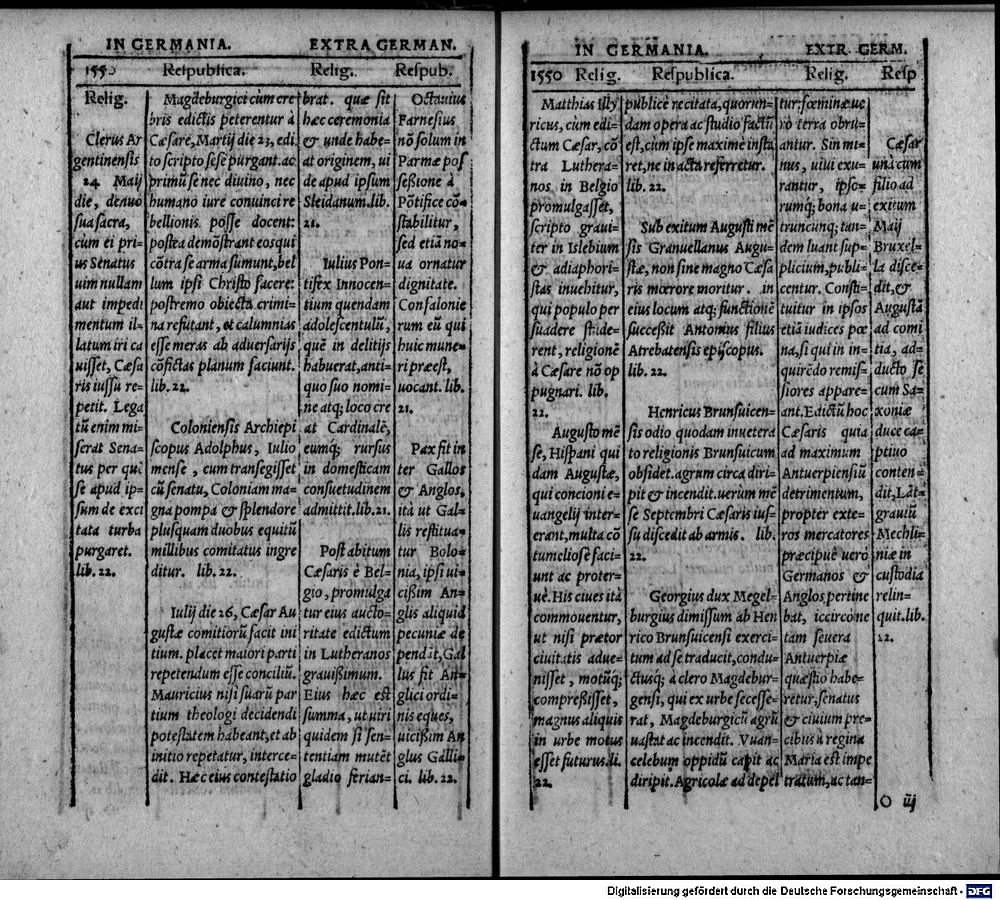 IN GERMANIA. EXTRA GERMAN.
1550 Respublica. Relig. Respub.
Relig.
Clerus Ar
gentinensis
24. Maij
die, denuò
sua sacra,
cum ei pri-
us Senatus
uim nullam
aut impedi
mentum il-
latum iri ca
uisset, Cæsa
ris iussu re-
petit. Lega
tũ enim mi-
serat Sena-
tus per quẽ
se apud ip-
sum de exci
tata turba
purgaret.
lib. 22.
Magdeburgici cùm cre
bris edictis peterentur à
Cæsare, Martij die 23, edi
to scripto sese purgant. ac
primũ se nec diuino, nec
humano iure conuinci re
bellionis posse docent:
postea demõstrant eos qui
cõtra se arma sumunt, bel
lum ipsi Christo facere:
postremo obiecta crimi-
na refutant, et calumnias
esse meras ab aduersarijs
cõfictas planum faciunt.
lib. 22.
Coloniensis Archiepi
scopus Adolphus, Iulio
mense, cum transegisset
cũ senatu, Coloniam ma-
gna pompa & splendore
plusquam duobus equitũ
millibus comitatus ingre
ditur. lib. 22.
Iulij die 26, Cæsar Au
gustæ comitiorũ facit ini
tium. placet maiori parti
repetendum esse conciliũ.
Mauricius nisi suarũ par
tium theologi decidendi
potestatem habeant, et ab
initio repetatur, interce-
dit. Hæc eius contestatio
brat. quæ sit
hæc ceremonia
& unde habe-
at originem, ui
de apud ipsum
Sleidanum. lib.
21.
Iulius Pon-
tifex Innocen-
tium quendam
adolescentulũ,
quẽ in delitijs
habuerat, anti-
quo suo nomi-
ne atq; loco cre
at Cardinalẽ,
eumq; rursus
in domesticam
consuetudinem
admittit. lib. 21.
Post abitum
Cæsaris è Bel-
gio, promulga
tur eius aucto-
ritate edictum
in Lutheranos
grauissimum.
Eius hæc est
summa, ut uiri
quidem si sen-
tentiam mutẽt
gladio ferian-
Octauius
Farnesius
nõ solum in
Parmæ pos
sessione à
Põtifice cõ-
stabilitur,
sed etiã no-
ua ornatur
dignitate.
Confalonie
rum eũ qui
huic mune-
ri præest,
uocant. lib.
21.
Pax fit in
ter Gallos
& Anglos,
ità ut Gal-
lis restitua-
tur Bolo-
nia, ipsi ui-
cißim An-
glis aliquid
pecuniæ de
pendãt, Gal
lus fit An-
glici ordi-
nis eques,
uicißim An
glus Galli-
ci. lib. 22.
IN GERMANIA. EXTR. GERM.
1550 Relig. Respublica. Relig. Resp
Matthias Illy
ricus, cùm edi-
ctum Cæsar, cõ
tra Luthera-
nos in Belgio
promulgasset,
scripto graui-
ter in Islebium
& adiaphori-
stas inuehitur,
qui populo per
suadere stude-
rent, religionẽ
à Cæsare nõ op
pugnari. lib.
22.
Augusto mẽ
se, Hispani qui
dam Augustæ,
qui concioni e-
uangelij inter-
erant, multa cõ
tumeliose faci-
unt ac proter-
uè. His ciues ità
commouentur,
ut nisi prætor
ciuitatis adue-
nisset, motũq;
compreßisset,
magnus aliquis
in urbe motus
esset futurus. li.
22.
publicè recitata, quorun-
dam opera ac studio factũ
est, cùm ipse maximè insta
ret, ne in acta referretur.
lib. 22.
Sub exitum Augusti mẽ
sis Granuellanus Augu-
stæ, non sine magno Cæsa
ris mœrore moritur. in
eius locum atq; functionẽ
succeßit Antonius filius
Atrebatensis episcopus.
lib. 22.
Henricus Brunsuicen-
sis odio quodam inuetera
to religionis Brunsuicum
obsidet. agrum circa diri-
pit & incendit. uerùm mẽ
se Septembri Cæsaris ius-
su discedit ab armis. lib.
22.
Georgius dux Megel-
burgius dimissum ab Hen
rico Brunsuicensi exerci-
tum ad se traducit, condu-
ctusq; à clero Magdebur-
gensi, qui ex urbe secesse-
rat, Magdeburgicũ agrũ
uastat ac incendit. Vuan-
celebum oppidũ capit ac
diripit. Agricolæ ad depel
tur: fœminæ ue
rò terra obru-
antur. Sin mi-
nus, uiui exu-
rantur, ipso-
rumq; bona u-
truncunq; tan-
dem luant sup-
plicium, publi-
centur. Consti-
tuitur in ipsos
etiã iudices pœ
na, si qui in in-
quirẽdo remis-
siores appare-
ant. Edictũ hoc
Cæsaris quia
ad maximum
Antuerpiensiũ
detrimentum,
propter exte-
ros mercatores
præcipuè uerò
Germanos &
Anglos pertine
bat, iccirco ne
tam seuera
Antuerpiæ
quæstio habe-
retur, senatus
& ciuium pre-
cibus à regina
Maria est impe
tratum, ac tan-
Cæsar
unà cum
filio ad
exitum
Maij
Bruxel-
la disce-
dit, &
Augustã
ad comi
tia, ad-
ducto se
cum Sa-
xoniæ
duce ca-
ptiuo
conten-
dit, Lãt-
grauiũ
Mechli-
niæ in
custodia
relin-
quit. lib.
22.
O iij
Digitalisierung gefördert durch die Deutsche Forschungsgemeinschaft - DFG